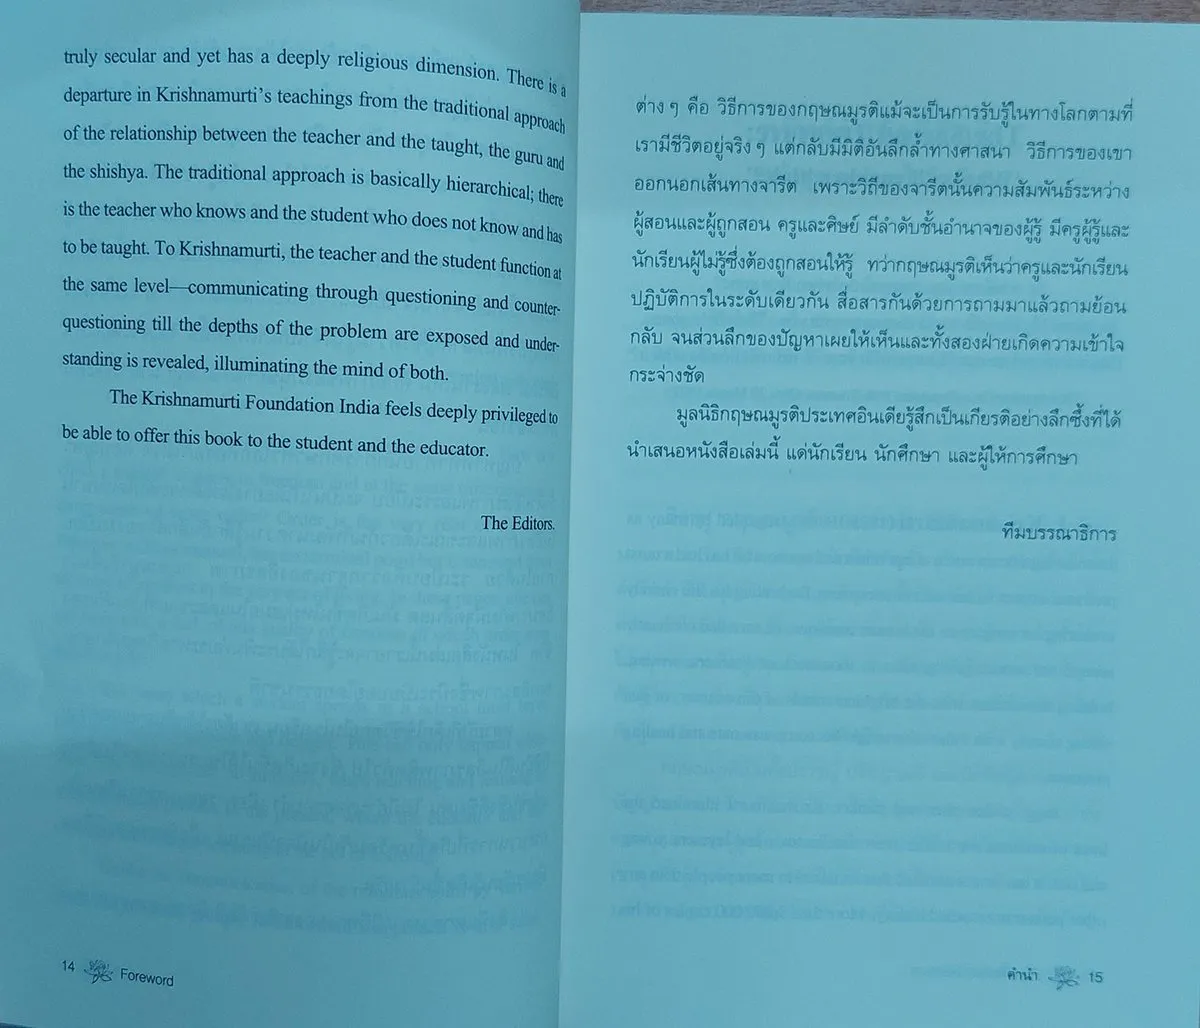 truly secular and yet has a deeply religious dimension. There is a
departure in Krishnamurti's teachings from the traditional approach
of the relationship between the teacher and the taught, the guru and
the shishya. The traditional approach is basically hierarchical; there
is the teacher who knows and the student who does not know and has
to be taught. To Krishnamurti, the teacher and the student function at
the same level—communicating through questioning and counter-
questioning till the depths of the problem are exposed and under-
standing is revealed, illuminating the mind of both.
The Krishnamurti Foundation India feels deeply privileged to
be able to offer this book to the student and the educator.
The Editors.
14 Foreword
ต่าง ๆ คือ วิธีการของกฤษณมูรติแม้จะเป็นการรับรู้ในทางโลกตามที่
เรามีชีวิตอยู่จริง ๆ แต่กลับมีมิติอันลึกล้ำทางศาสนา วิธีการของเขา
ออกนอกเส้นทางจารีต เพราะวิถีของจารีตนั้นความสัมพันธ์ระหว่าง
ผู้สอนและผู้ถูกสอน ครูและศิษย์ มีลำดับชั้นอำนาจของผู้รู้ มีครูผู้รู้และ
นักเรียนผู้ไม่รู้ซึ่งต้องถูกสอนให้รู้ ทว่ากฤษณมูรติเห็นว่าครูและนักเรียน
ปฏิบัติการในระดับเดียวกัน สื่อสารกันด้วยการถามมาแล้วถามย้อน
กลับ จนส่วนลึกของปัญหาเผยให้เห็นและทั้งสองฝ่ายเกิดความเข้าใจ
กระจ่างชัด
มูลนิธิกฤษณมูรติประเทศอินเดียรู้สึกเป็นเกียรติอย่างลึกซึ้งที่ได้
นำเสนอหนังสือเล่มนี้ แด่นักเรียน นักศึกษา และผู้ให้การศึกษา
ทีมบรรณาธิการ
คำนำ 15